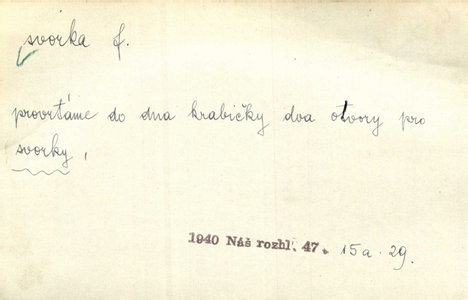 svorka f.
provrtáme do dna krabičky dva otvory pro
svorky,
1940 Náš rozhl. 47. 15a. 29.